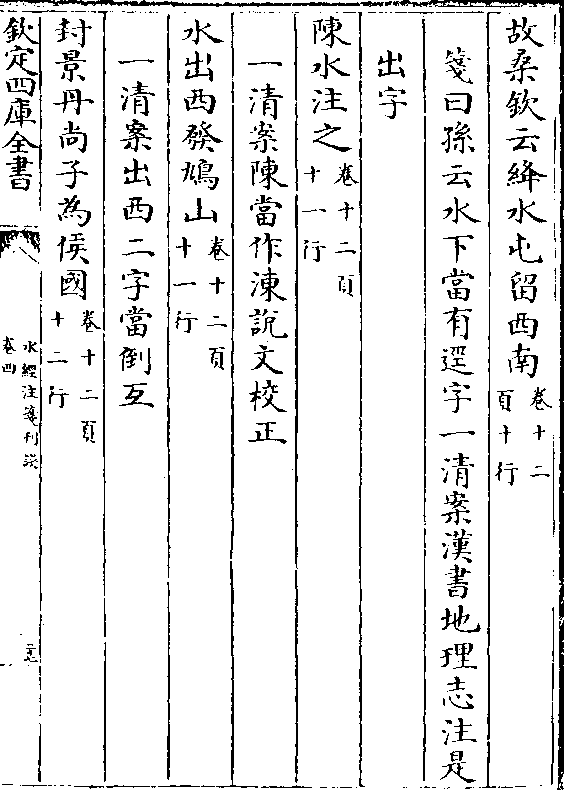 故桑欽云絳水屯留西南卷十二頁十行
箋曰孫云水下當有逕字一清案漢書地理志注是
出字
陳水注之卷十二頁十一行
一清案陳當作涷說文校正
水出西發鳩山卷十二頁十一行
一清案出西二字當倒互
封景丹尚子為侯國卷十二頁十二行
欽定四庫全書
水經注箋刊誤
卷四